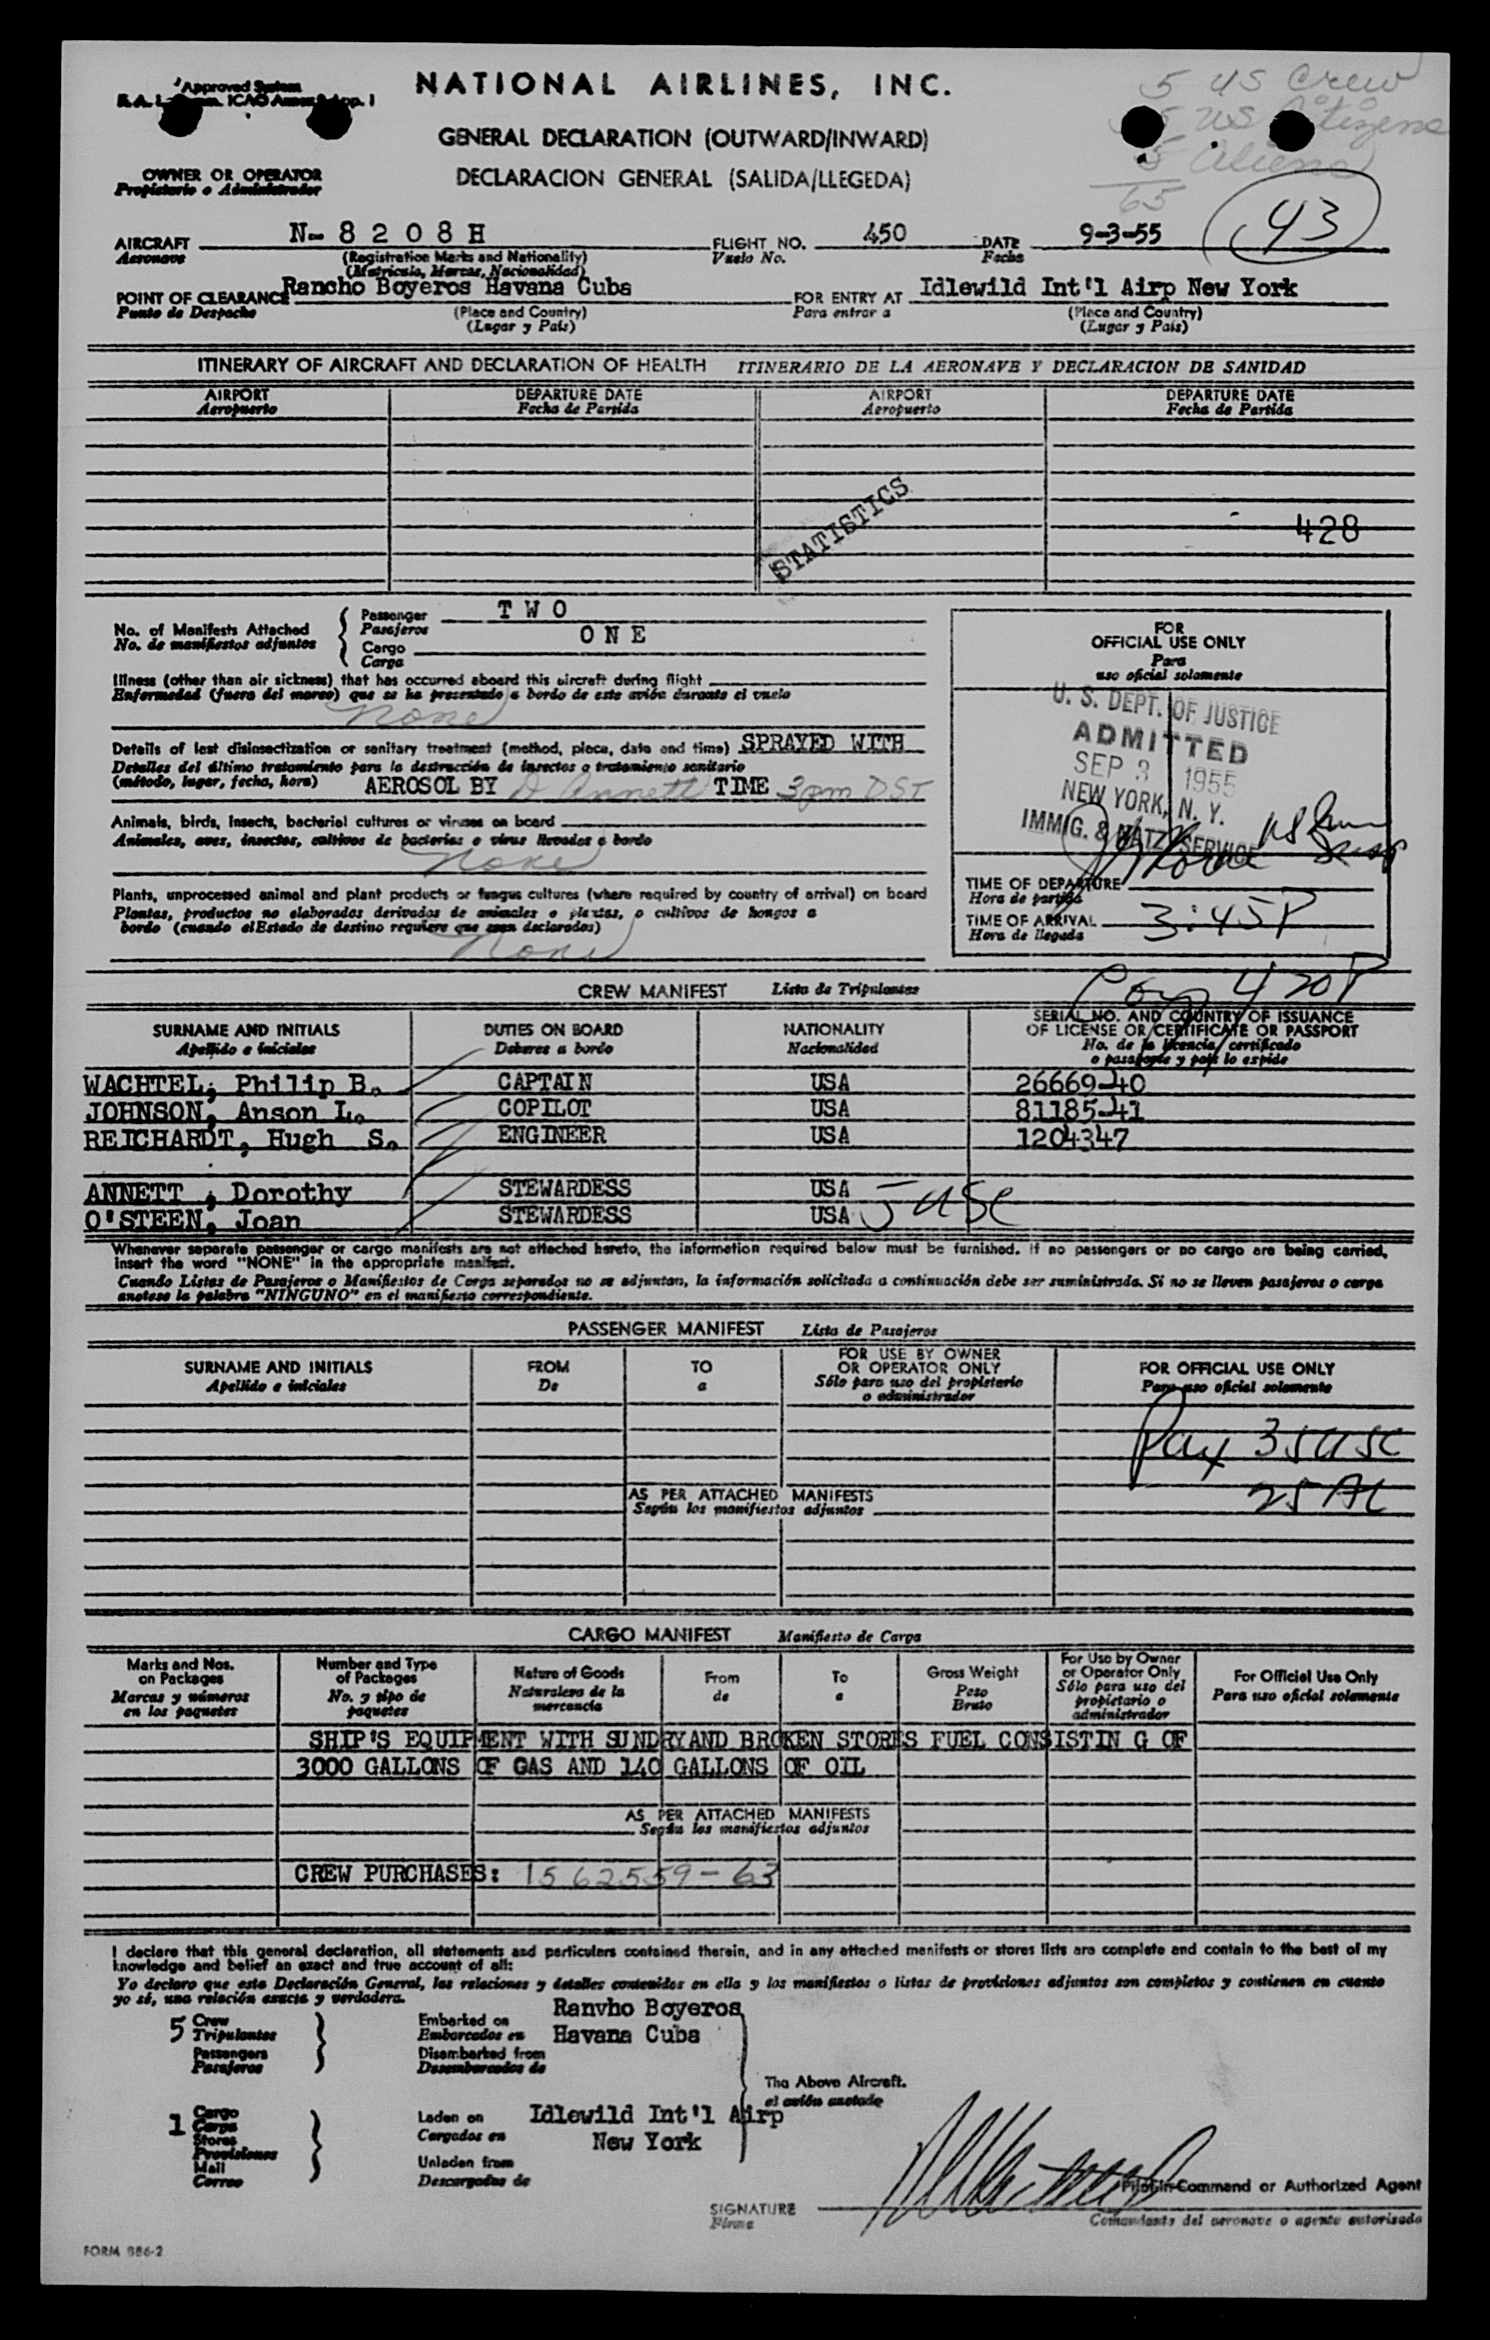 NATIONAL AIRLINES, INC.
GENERAL DECLARATION (OUTWARD/INWARD)
DECLARACION GENERAL (SALIDA/LLEGEDA)
Approved System
ICAO Annex App. I
5 US Crew
US Citizens
5 Aliens
65
OWNER OR OPERATOR
Propietario o Administrador
AIRCRAFT N-8208H FLIGHT NO. 450 DATE 9-3-55 43
Aeronave Vuelo No. Fecha
(Registration Marks and Nationality)
(Matricula, Marcas, Nacionalidad)
POINT OF CLEARANCE Rancho Boyeros Havana Cuba FOR ENTRY AT Idlewild Int'l Airp New York
Punto de Despacho (Place and Country) Para entrar a (Place and Country)
(Lugar y País) (Lugar y País)
ITINERARY OF AIRCRAFT AND DECLARATION OF HEALTH ITINERARIO DE LA AERONAVE Y DECLARACION DE SANIDAD
AIRPORT DEPARTURE DATE AIRPORT DEPARTURE DATE
Aeropuerto Fecha de Partida Aeropuerto Fecha de Partida
STATISTICS
428
No. of Manifests Attached Passenger TWO
No. de manifiestos adjuntos Pasajeros
Cargo ONE
Carga
Illness (other than air sickness) that has occurred aboard this aircraft during flight
Enfermedad (fuera del mareo) que se ha presentado a bordo de este avión durante el vuelo
None
Details of last disinsectization or sanitary treatment (method, place, date and time) SPRAYED WITH
Detalles del último tratamiento para la destrucción de insectos o tratamiento sanitario
(método, lugar, fecha, hora) AEROSOL BY D Annett TIME 3pm DST
Animals, birds, insects, bacterial cultures or viruses on board
Animales, aves, insectos, cultivos de bacterias o virus llevados a bordo
None
Plants, unprocessed animal and plant products or fungus cultures (where required by country of arrival) on board
Plantas, productos no elaborados derivados de animales o plantas, o cultivos de hongos a
bordo (cuando el Estado de destino requiere que sean declarados)
None
FOR
OFFICIAL USE ONLY
Para
uso oficial solamente
U. S. DEPT. OF JUSTICE
ADMITTED
SEP 3 1955
NEW YORK, N. Y.
IMMIG. & NATZ. SERVICE
TIME OF DEPARTURE
Hora de partida
TIME OF ARRIVAL 3:45P
Hora de llegada
420P
CREW MANIFEST Lista de Tripulantes
SURNAME AND INITIALS DUTIES ON BOARD NATIONALITY SERIAL NO. AND COUNTRY OF ISSUANCE
OF LICENSE OR CERTIFICATE OR PASSPORT
Apellido e iniciales Deberes a bordo Nacionalidad No. de la licencia, certificado
o pasaporte y país lo expide
WACHTEL, Philip B. CAPTAIN USA 26669-40
JOHNSON, Anson L. COPILOT USA 81185-41
REICHARDT, Hugh S. ENGINEER USA 1204347
ANNETT, Dorothy STEWARDESS USA
O'STEEN, Joan STEWARDESS USA 5 USC
Whenever separate passenger or cargo manifests are not attached hereto, the information required below must be furnished. If no passengers or no cargo are being carried,
insert the word "NONE" in the appropriate manifest.
Cuando Listas de Pasajeros o Manifiestos de Carga separados no se adjuntan, la información solicitada a continuación debe ser suministrada. Si no se lleven pasajeros o carga
anotese la palabra "NINGUNO" en el manifiesto correspondiente.
PASSENGER MANIFEST Lista de Pasajeros
SURNAME AND INITIALS FROM TO FOR USE BY OWNER
OR OPERATOR ONLY FOR OFFICIAL USE ONLY
Apellido e iniciales De a Sólo para uso del propietario
o administrador Para uso oficial solamente
Pax 35 USC
25 AC
AS PER ATTACHED MANIFESTS
Según los manifiestos adjuntos
CARGO MANIFEST Manifiesto de Carga
Marks and Nos.
on Packages
Marcas y números
en los paquetes
Number and Type
of Packages
No. y tipo de
paquetes
Nature of Goods
Naturaleza de la
mercancia
From
de
To
a
Gross Weight
Peso
Bruto
For Use by Owner
or Operator Only
Sólo para uso del
propietario o
administrador
For Official Use Only
Para uso oficial solamente
SHIP'S EQUIPMENT WITH SUNDRYAND BROKEN STORES FUEL CONSISTIN G OF
3000 GALLONS OF GAS AND 140 GALLONS OF OIL
AS PER ATTACHED MANIFESTS
Según los manifiestos adjuntos
CREW PURCHASES: 1562559-63
I declare that this general declaration, all statements and particulars contained therein, and in any attached manifests or stores lists are complete and contain to the best of my
knowledge and belief an exact and true account of all:
Yo declaro que esta Declaración General, las relaciones y detalles contenidos en ella y los manifiestos o listas de provisiones adjuntos son completos y contienen en cuanto
yo sé, una relación exacta y verdadera.
5 Crew
Tripulantes
Passengers
Pasajeros
Embarked on
Embarcados en
Disembarked from
Desembarcados de
Ranvho Boyeros
Havana Cuba
The Above Aircraft.
el avión anotado
1 Cargo
Carga
Stores
Provisiones
Mail
Correo
Laden on
Cargados en
Unladen from
Descargados de
Idlewild Int'l Airp
New York
Pilot-in-Command or Authorized Agent
SIGNATURE
Firma
Comandante del aeronave o agente autorizado
FORM 886-2